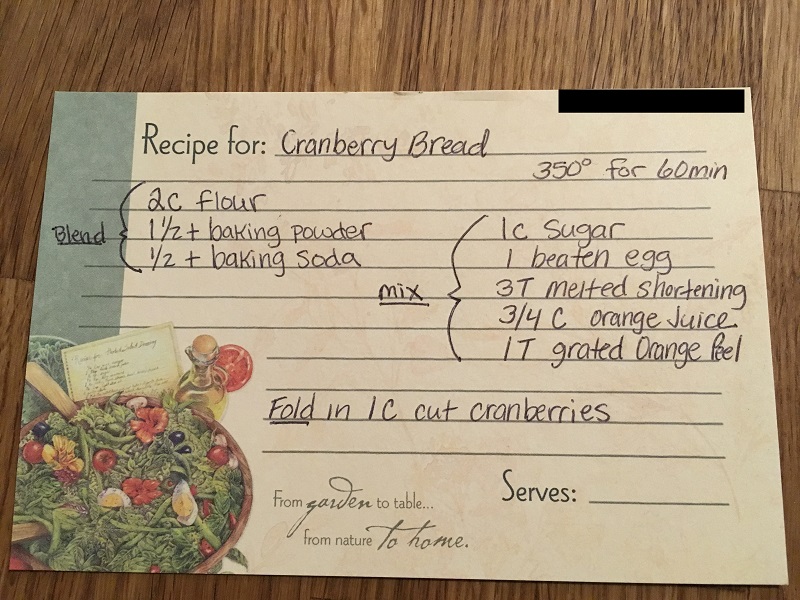 Recipe for: Cranberry Bread
350° for 60min
Blend
2c flour
1½ t baking powder
½ t baking soda
mix
1c Sugar
1 beaten egg
3T melted shortening
3/4 C orange Juice
1T grated Orange Peel
Fold in 1C cut cranberries
Serves:
From garden to table...
from nature to home.